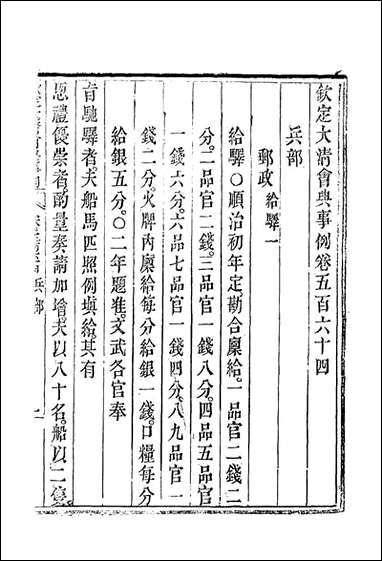 欽定大清會典事例卷五百六十四
兵部
郵政給驛一
給驛○順治初年定勘合廩給一品官二錢二
分二品官二錢三品官一錢八分四品五品官
一錢六分六品七品官一錢四分八九品官一
錢二分火牌內廩給每分給銀一錢口糧每分
給銀五分○二年題准文武各官奉
旨馳驛者夫船馬匹照例填給其有
恩禮優崇者酌量奏請加增夫以八十名船以二隻